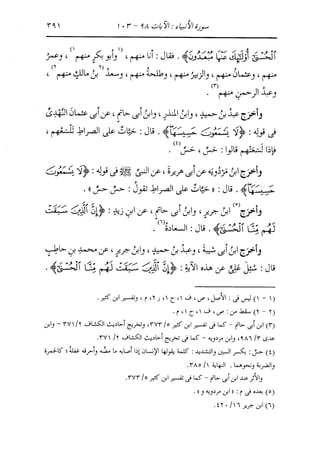 سورة الأنبياء: الآيات ٩٨ - ١٠٣ ٣٩١
الْحُسْنَىٰ أُولَٰئِكَ عَنْهَا مُبْعَدُونَ﴾. فقال: أنا منهم، (١)وأبو بكرٍ منهم(١)، وعمرُ
منهم، وعثمانُ منهم، والزبيرُ منهم، وطلحةُ منهم، وسعدُ (٢)بنُ مالكٍ منهم(٢)،
وعبدُ الرحمنِ منهم(٣).
وأخرَج عبدُ بنُ حميدٍ، وابنُ المنذرِ، وابنُ أبى حاتمٍ، عن أبى عثمانَ النَّهْدِىِّ
فى قولِه: ﴿لَا يَسْمَعُونَ حَسِيسَهَا﴾. قال: حَيَّاتٌ على الصراطِ تَلْسَعُهم،
فإذا لَسَعَتْهم قالوا: حَسِّ، حَسِّ(٤).
وأخرَج ابنُ مَرْدُويَه عن أبى هريرةَ، عن النبىِّ ﷺ فى قولِه: ﴿لَا يَسْمَعُونَ
حَسِيسَهَا﴾. قال: «حَيَّاتٌ على الصراطِ تقولُ: حسِّ حسِّ».
وأخرَج (٥) ابنُ جريرٍ، وابنُ أبى حاتمٍ، عن ابنِ زيدٍ: ﴿إِنَّ الَّذِينَ سَبَقَتْ
لَهُم مِّنَّا الْحُسْنَىٰ﴾. قال: السعادةُ(٦).
وأخرَج ابنُ أبى شيبةَ، وعبدُ بنُ حميدٍ، وابنُ جريرٍ، عن محمدِ بنِ حاطبٍ
قال: سُئِل علىٌّ عن هذه الآيةِ: ﴿إِنَّ الَّذِينَ سَبَقَتْ لَهُم مِّنَّا الْحُسْنَىٰ﴾.
(١ - ١) ليس فى: الأصل، ص، ف ١، ح ١، ر ٢، م، وتفسير ابن كثير.
(٢ - ٢) سقط من: ص، ف ١، ح ١، م.
(٣) ابن أبى حاتم - كما فى تفسير ابن كثير ٥/ ٣٧٣، وتخريج أحاديث الكشاف ٢/ ٣٧١ - وابن
عدى ٣/ ٩٨٦، وابن مردويه - كما فى تخريج أحاديث الكشاف ٢/ ٣٧١.
(٤) حسّ: بكسر السين والتشديد: كلمة يقولها الإنسان إذا أصابه ما مضّه وأحرقه غفلة؛ كالجمرة
والضربة ونحوهما. النهاية ١/ ٣٨٥.
والأثر عند ابن أبى حاتم - كما فى تفسير ابن كثير ٥/ ٣٧٣.
(٥) بعده فى م: «ابن مردويه و».
(٦) ابن جرير ١٦/ ٤٢٠.